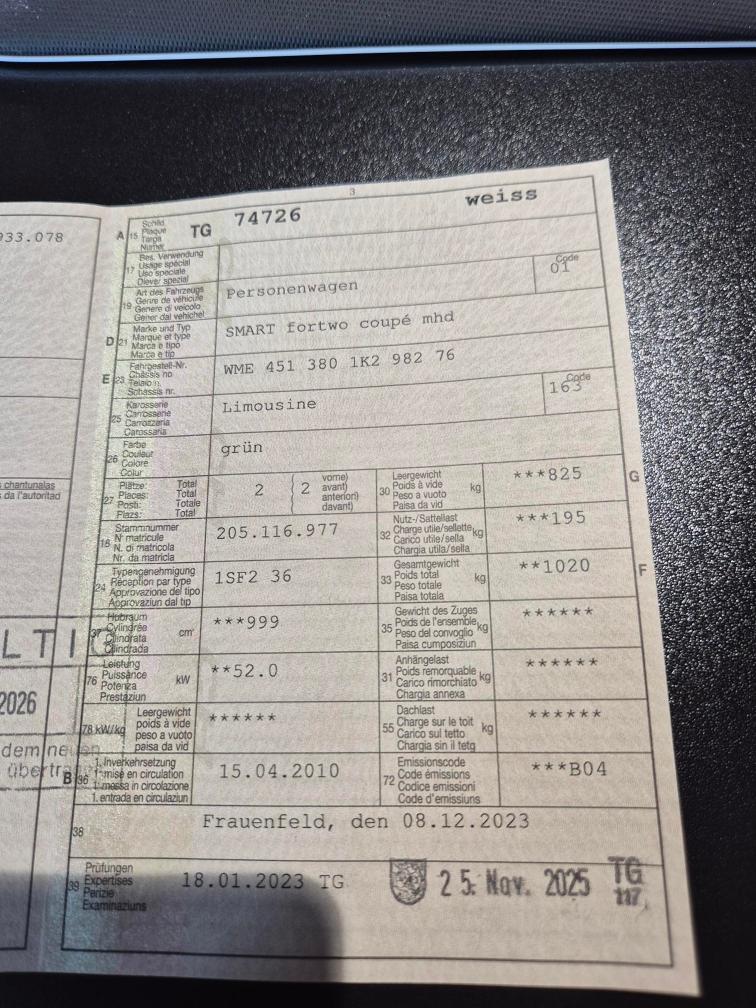 933.078
3
A 15 Schild Plaque Targa Numer TG 74726 weiss
17 Bes. Verwendung Usage spécial Uso speciale Diever spezial
19 Art des Fahrzeugs Genre de véhicule Genere di veicolo Gener dal vehichel Personenwagen Code 01
D 21 Marke und Typ Marque et type Marca e tipo Marca e tip SMART fortwo coupé mhd
E 23 Fahrgestell-Nr. Châssis no Telaio n. Schassis nr. WME 451 380 1K2 982 76
25 Karosserie Carrosserie Carrozzeria Carossaria Limousine Code 163
26 Farbe Couleur Colore Colur grün
chantunalas
da l'autoritad
27 Plätze: Places: Posti: Plazs: Total Total Totale Total 2 2 vorne) avant) anteriori) davant)
30 Leergewicht Poids à vide Peso a vuoto Paisa da vid kg ***825 G
18 Stammnummer N° matricule N. di matricola Nr. da matricla 205.116.977
32 Nutz-/Sattellast Charge utile/sellette Carico utile/sella Chargia utila/sella kg ***195
24 Typengenehmigung Réception par type Approvazione del tipo Approvaziun dal tip 1SF2 36
33 Gesamtgewicht Poids total Peso totale Paisa totala kg **1020 F
37 Hubraum Cylindrée Cilindrata Cilindrada cm³ ***999
35 Gewicht des Zuges Poids de l'ensemble Peso del convoglio Paisa cumposiziun kg ******
76 Leistung Puissance Potenza Prestaziun kW **52.0
31 Anhängelast Poids remorquable Carico rimorchiato Chargia annexa kg ******
2026
78 kW/kg Leergewicht poids à vide peso a vuoto paisa da vid ******
55 Dachlast Charge sur le toit Carico sul tetto Chargia sin il tetg kg ******
dem neuen
übertra
B 36 1. Inverkehrsetzung 1re mise en circulation 1a messa in circolazione 1. entrada en circulaziun 15.04.2010
72 Emissionscode Code émissions Codice emissioni Code d'emissiuns ***B04
38 Frauenfeld, den 08.12.2023
39 Prüfungen Expertises Perizie Examinaziuns 18.01.2023 TG 25. Nov. 2025 TG 117